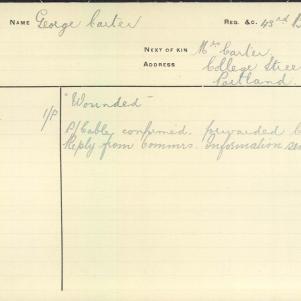 NAME George Carter REG. &C. 43rd B
NEXT OF KIN Mrs Carter,
ADDRESS College Stree
Portland
"Wounded"
1/P P/Cable confirmed. forwarded C
Reply from Commrs. Information se